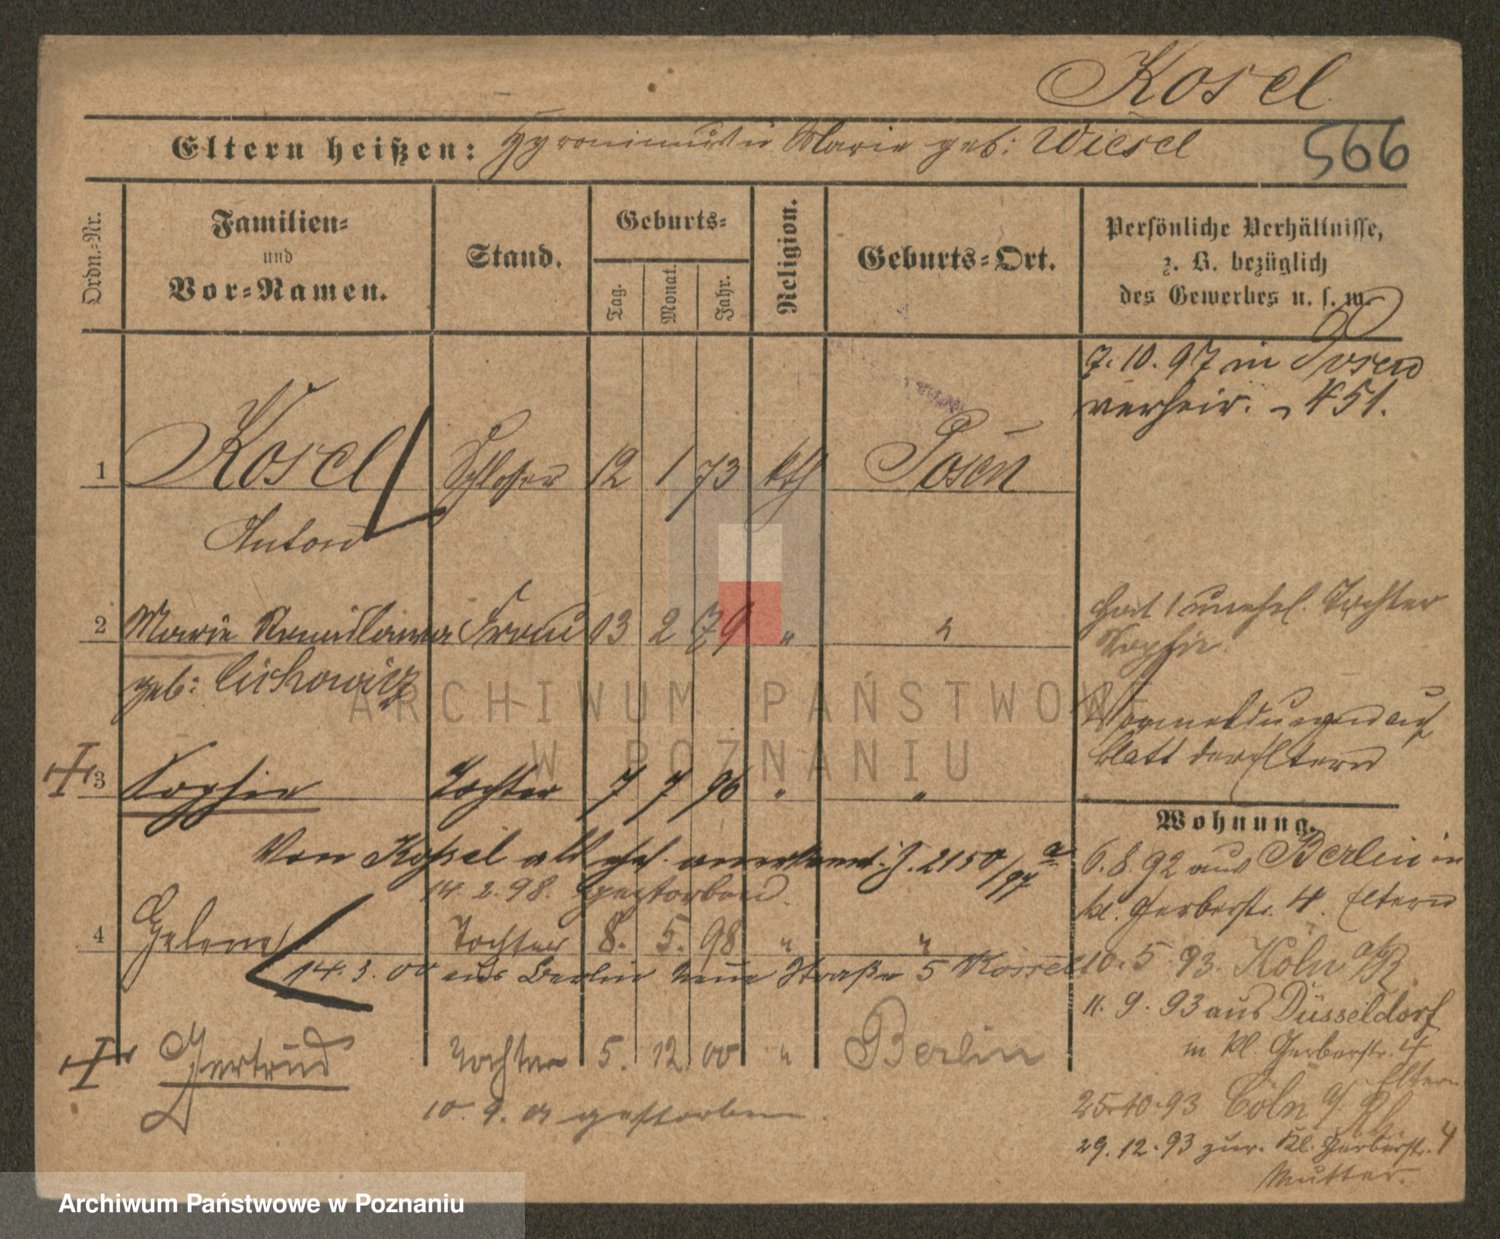 Kosel
Eltern heißen: Hyronimus u Marie geb: Wiesel
566
Ordn.-Nr.
Familien-
und
Vor-Namen.
Stand.
Geburts-
Tag.
Monat.
Jahr.
Religion.
Geburts-Ort.
Persönliche Verhältnisse,
z. B. bezüglich
des Gewerbes u. s. w.
7. 10. 97 in Posen
verheir. 451.
1 Kosel Schlosser 12 1 73 kth Posen
Anton
2 Marie Frau 13 2 79 " "
geb: Cichowicz
hat 1 unehel. Tochter
Sophie.
Vormeldungen auf
Blatt der Eltern
3 Sophie Tochter 7 7 96 " "
Von Kosel als ehel. anerkannt. J. 2150/97 a
14. 2. 98. gestorben.
4 Helene Tochter 8. 5. 98 " "
14. 3. 00 aus Berlin Neue Straße 5 Kossel
Gertrud Tochter 5. 12. 00 " Berlin
10. 9. 01 gestorben.
Wohnung.
6. 8. 92 aus Berlin in
kl. Gerberstr. 4. Eltern
10. 5. 93. Köln a/R.
11. 9. 93 aus Düsseldorf
in kl. Gerberstr. 4
Eltern
25. 10. 93 Cöln a/ Rh.
29. 12. 93 zur. Kl. Gerberstr. 4
Mutter.
ARCHIWUM PAŃSTWOWE
W POZNANIU
Archiwum Państwowe w Poznaniu